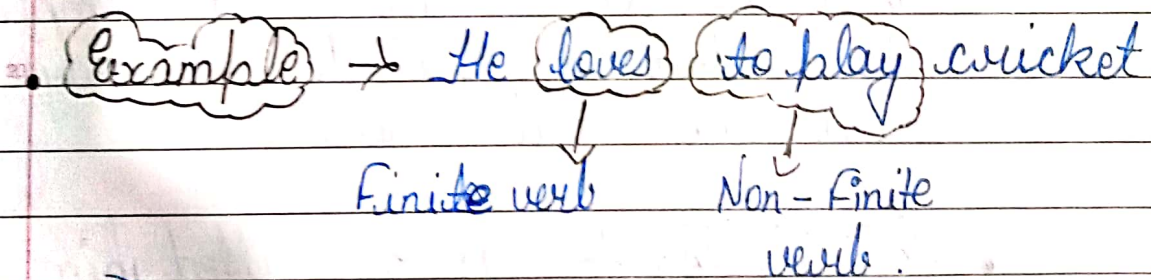 • Example → He loves to play cricket
Finite verb Non-finite
verb.